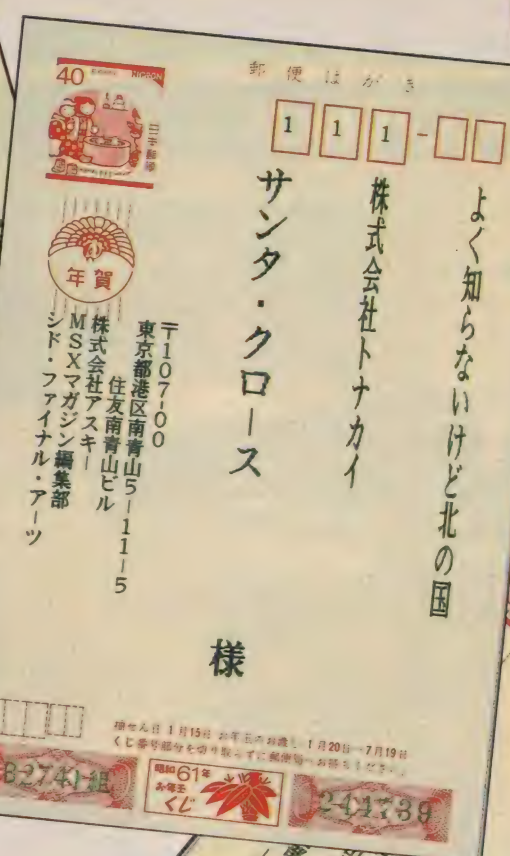 40 NIPPON
日本郵便
郵便はがき
111-
よく知らないけど北の国
株式会社トナカイ
サンタ・クロース
様
年賀
〒107-00
東京都港区南青山5-11-5
住友南青山ビル
株式会社アスキー
MSXマガジン編集部
シド・ファイナル・アーツ
抽せん日 1月15日 お年玉のお渡し 1月20日-7月19日
くじ番号部分を切り取らずに郵便局へお持ちください。
B2741組
昭和61年
お年玉
くじ
244739